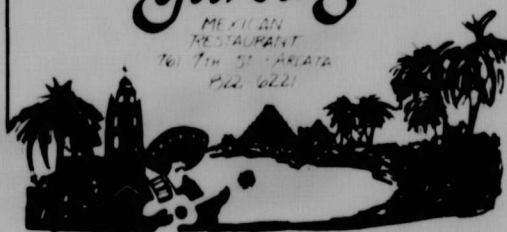 MEXICAN
RESTAURANT
761 9TH ST · ARCATA
822 6221